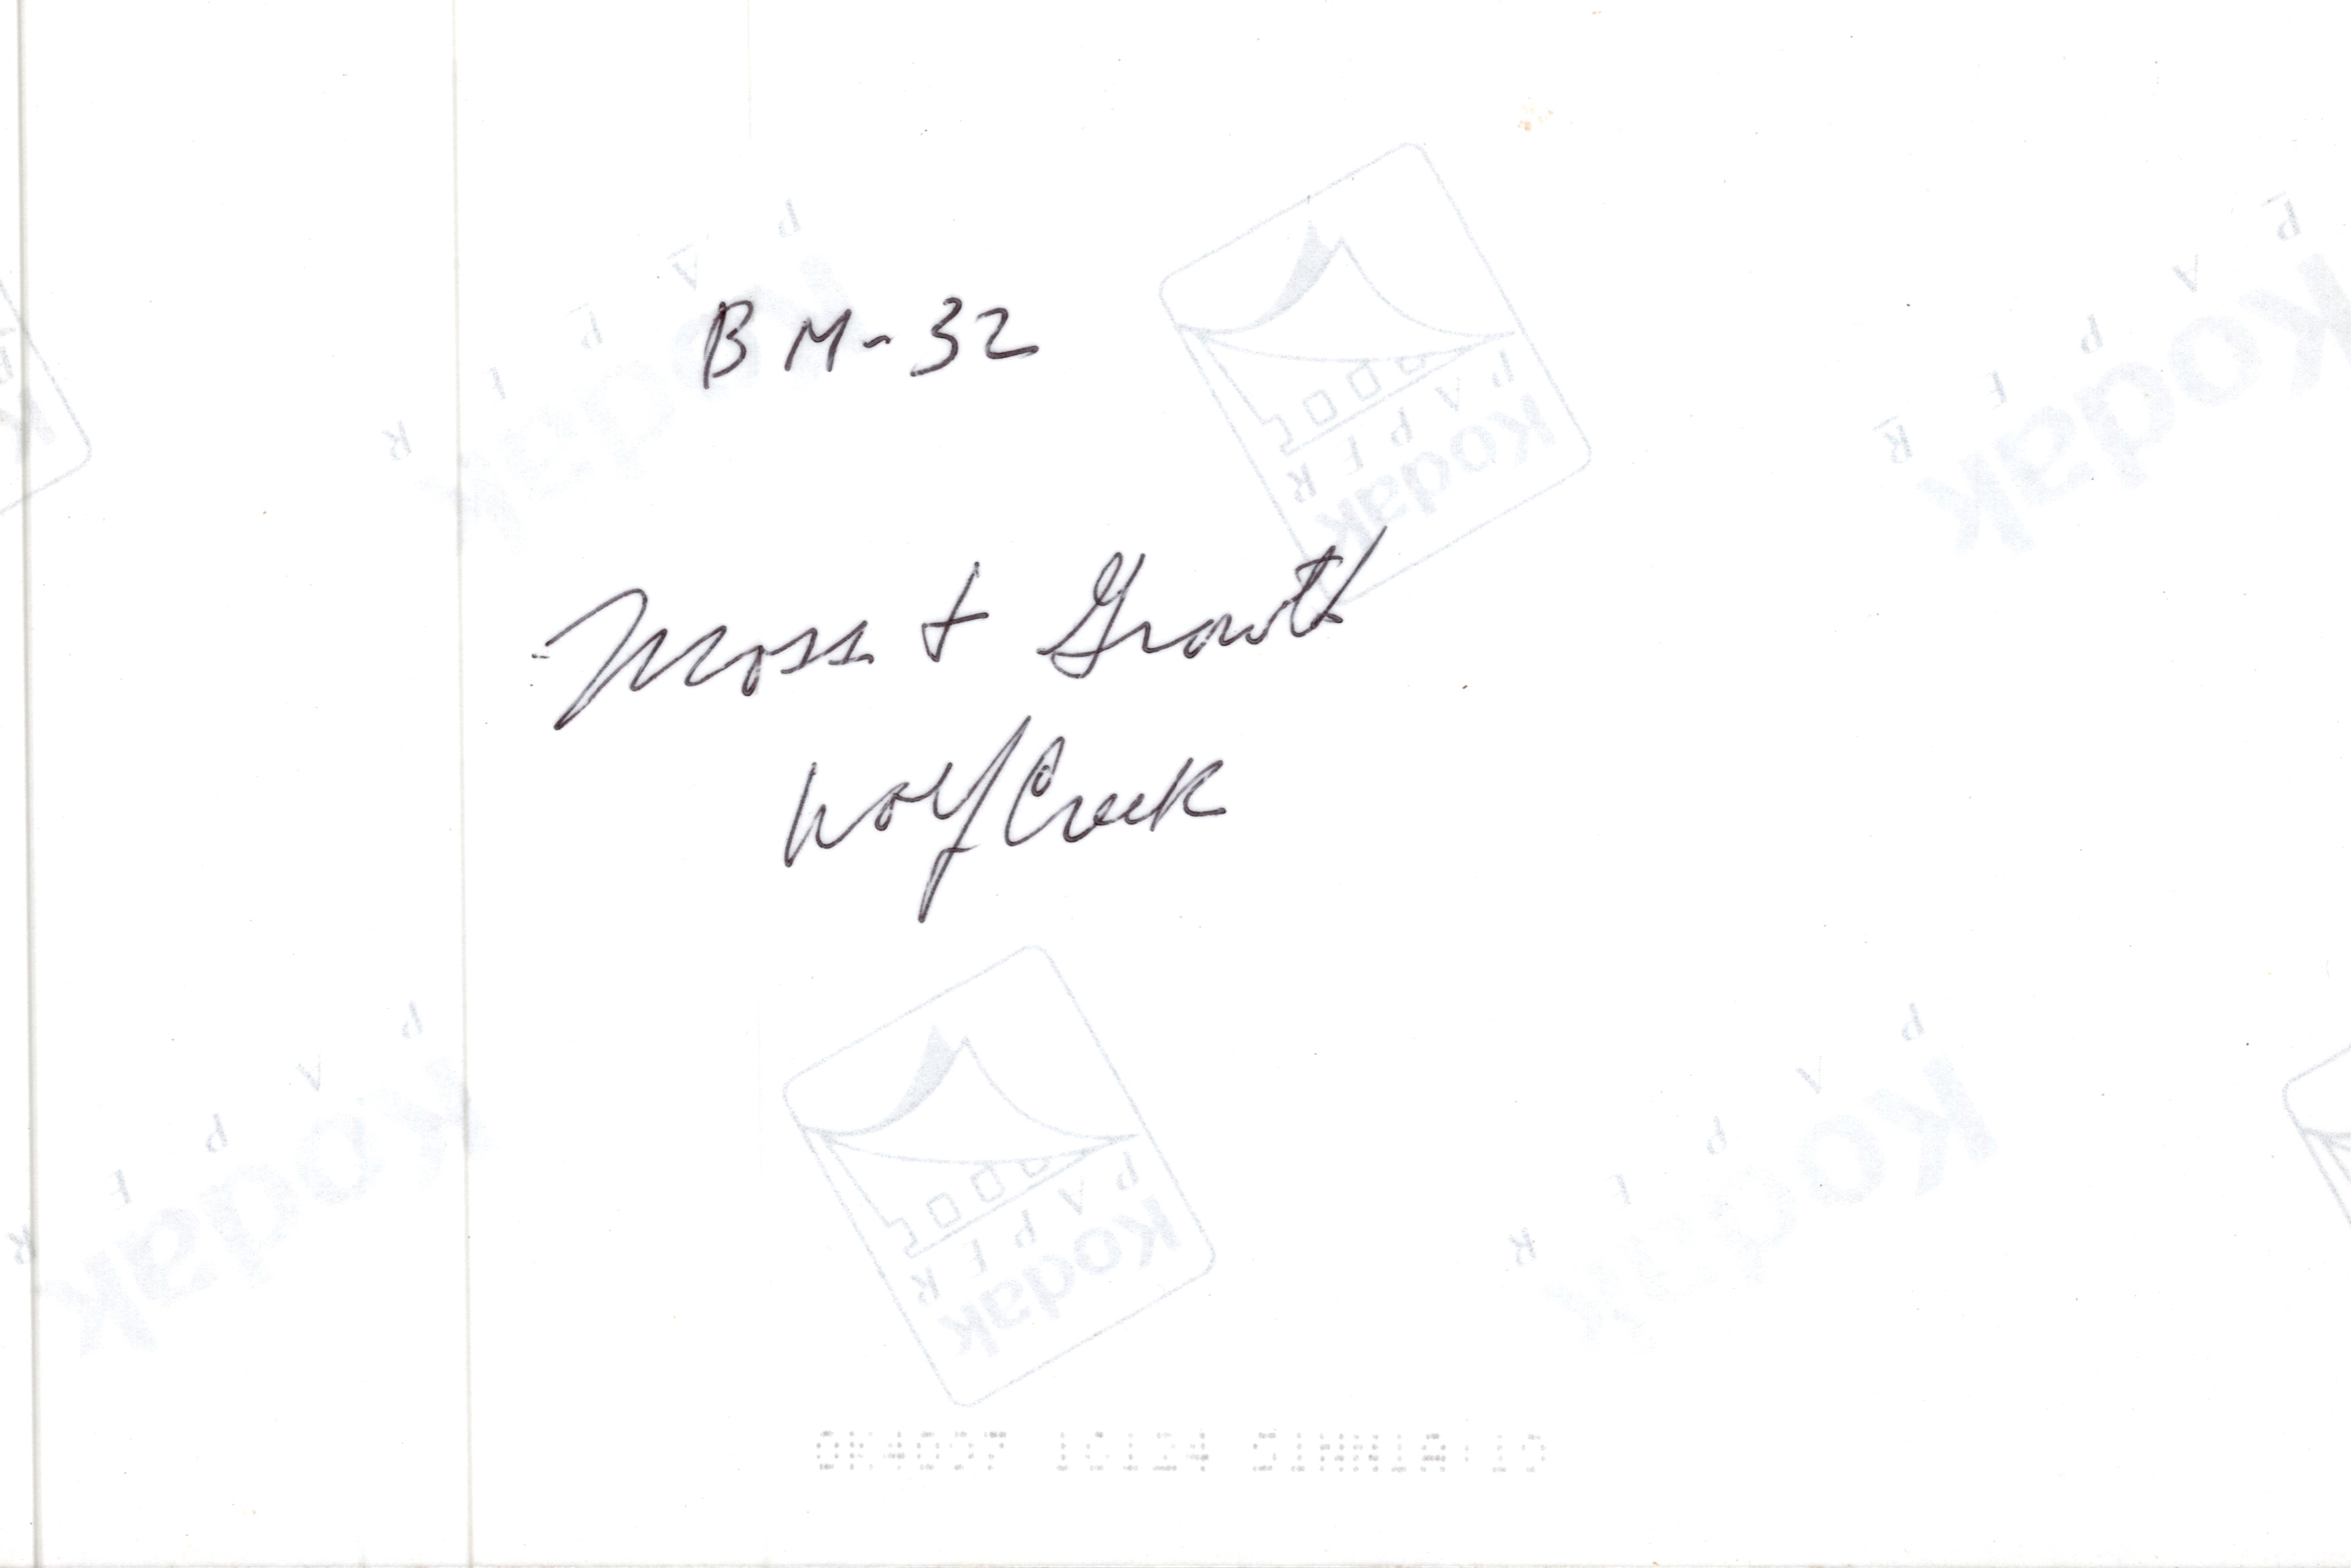 BM-32
Moss + Growth
Wolf Creek
Kodak
PAPER
Kodak
PAPER
Kodak
PAPER
Kodak
PAPER
Kodak
PAPER
Kodak
PAPER